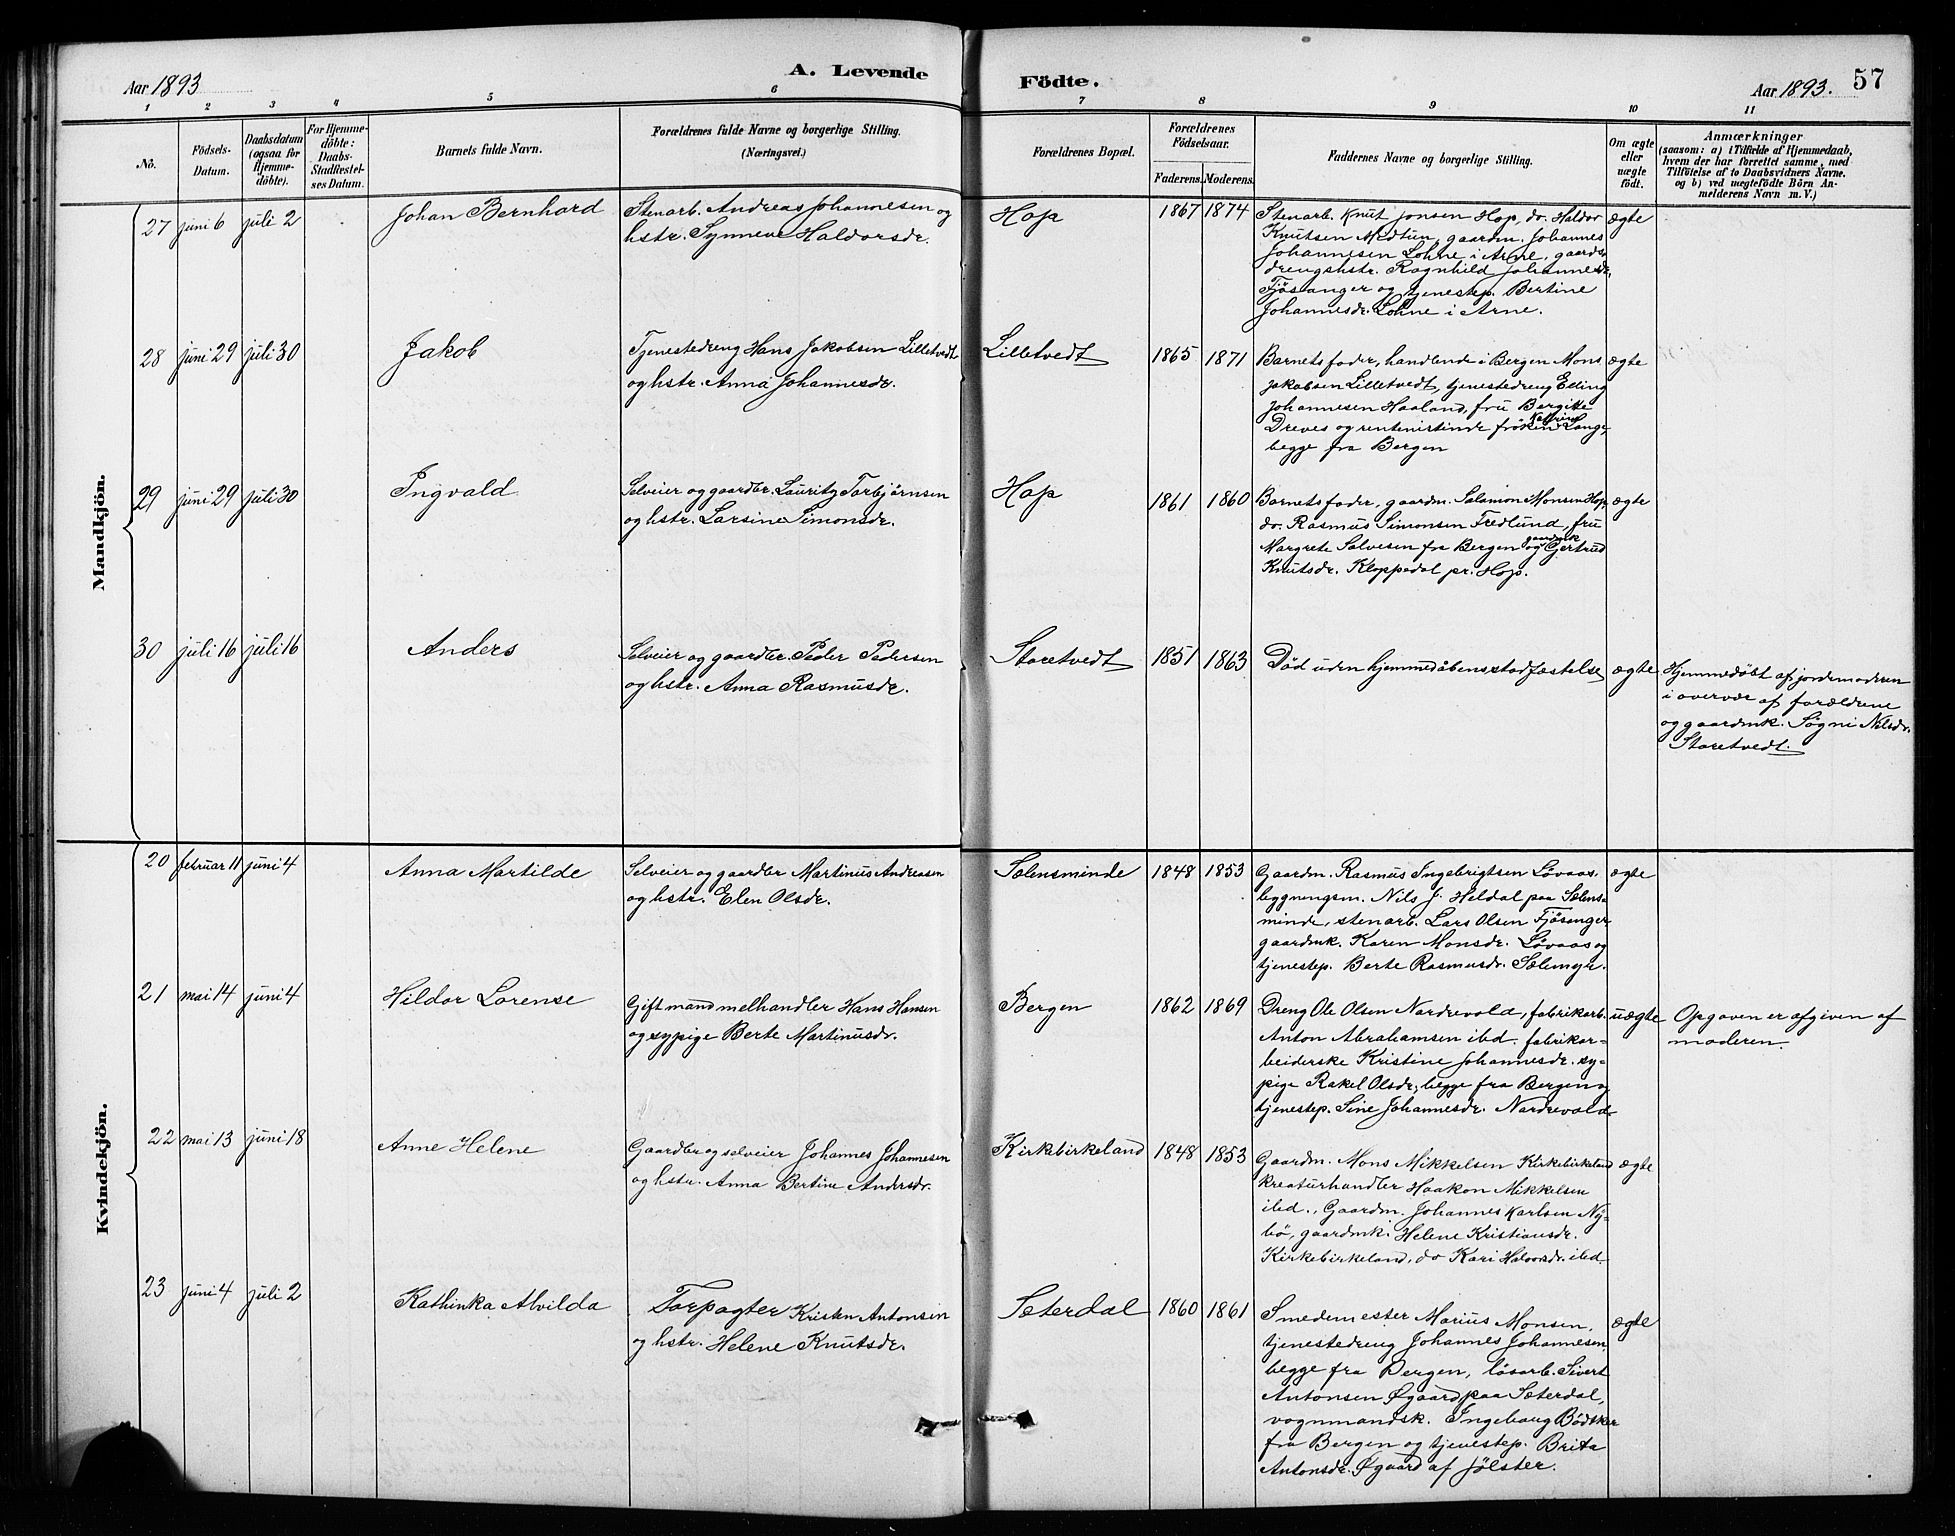 Aar 1893
A. Levende
Födte.
Aar 1893.
57
1 2 3 4 5 6 7 8 9 10 11
No.
Födsels-
Datum.
Daabsdatum
(ogsaa for
Hjemme-
döbte).
For Hjemme-
döbte:
Daabs-
Stadfæstel-
ses Datum.
Barnets fulde Navn.
Forældrenes fulde Navne og borgerlige Stilling.
(Næringsvei.)
Forældrenes Bopæl.
Forældrenes
Födselsaar.
Faderens. Moderens.
Faddernes Navne og borgerlige Stilling.
Om ægte
eller
uægte
født.
Anmærkninger
(saasom: a) i Tilfælde af Hjemmedaab,
hvem der har forrettet samme, med
Tilföielse af to Daabsvidners Navne.
og b) ved uægtefödte Börn An-
melderens Navn m. V.)
Mandkjön.
27 juni 6 juli 2
Johan Bernhard
Stenarb. Andreas Johannesen og
hstr. Synneve Haldorsdr.
Hop
1867 1874
Stenarb. Knut Jonsen Hop, do. Haldor
Knutsen Midtun, gaardm. Johannes
Johannesen Lohne i Arne, gaards-
drengshstr. Ragnhild Johannesdr.
Fjøsanger og tjenestep. Bertine
Johannesdr. Lohne i Arne.
ægte
28 juni 29 juli 30
Jakob
Tjenestedreng Hans Jakobsen Lilletvedt
og hstr. Anna Johannesdr.
Lilletvedt
1865 1871
Barnets fader, handlende i Bergen Mons
Jakobsen Lilletvedt, tjenestedreng Elling
Johannesen Haaland, fru Bergitte
Dreves og rentenistinde frøken Katrine Lange,
begge fra Bergen
ægte
29 juni 29 juli 30
Ingvald
Selveier og gaardbr. Lauritz Torbjørnsen
og hstr. Larsine Simonsdr.
Hop
1861 1860
Barnets fader, gaardm. Salamon Monsen Hop,
do. Rasmus Simonsen Fredlund, fru
Margrete Salvesen fra Bergen og gaardmk Gjertrud
Knutsdr. Kloppedal pr. Hop.
ægte
30 juli 16 juli 16
Anders
Selveier og gaardbr. Peder Pedersen
og hstr. Anna Rasmusdr.
Storetvedt
1851 1863
Død uden hjemmedåbensstadfæstelse
ægte
Hjemmedøbt af jordemoderen
i overvær af forældrene
og gaardmk. Søgni Nilsdr.
Storetvedt.
Kvindekjön.
20 februar 11 juni 4
Anna Martilde
Selveier og gaardbr Martinus Andreasen
og hstr. Elen Olsdr.
Sælensminde
1848 1853
Gaardm. Rasmus Ingebrigtsen Løvaas,
bygningsm. Nils J. Heldal paa Sælens-
minde, stenarb. Lars Olsen Fjøsanger
gaardmk. Karen Monsdr. Løvaas og
tjenestep. Berte Rasmusdr. Sælemyr.
ægte
21 mai 14 juni 4
Hildor Lorense
Gift mand melhandler Hans Hansen
og sypige Berte Martinusdr.
Bergen
1862 1869
Dreng Ole Olsen Nordrevold, fabrikarb.
Anton Abrahamsen ibd. fabrikar-
beiderske Kristine Johannesdr. sy-
pige Rakel Olsdr, begge fra Bergen og
tjenestep. Sine Johannesdr. Nordrevold
uægte
Opgaven er afgiven af
moderen.
22 mai 13 juni 18
Anne Helene
Gaardbr og selveier Johannes Johannesen
og hstr. Anna Bertine Andersdr.
Kirkebirkeland
1848 1853
Gaardm. Mons Mikkelsen Kirkebirkeland
kreaturhandler Haakon Mikkelsen
ibd., Gaardm. Johannes Karlsen Ny-
bø, gaardmk. Helene Kristiansdr.
Kirkebirkeland, do Kari Halvorsdr. ibd.
ægte
23 juni 4 juli 2
Kathinka Alvilda
Forpagter Kristen Antonsen
og hstr. Helene Knutsdr.
Sæterdal
1860 1861
Smedemester Marius Monsen,
tjenestedreng Johannes Johannesen
begge fra Bergen, løsarb. Sivert
Antonsen Øgaard paa Sæterdal,
vognmandsk. Ingeborg Bødtker
fra Bergen og tjenestep. Brita
Antonsdr. Øgaard af Jølster.
ægte